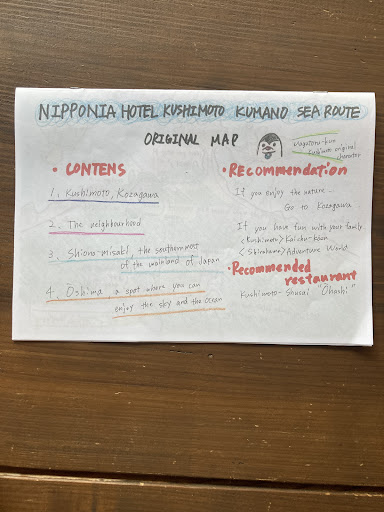 NIPPONIA HOTEL KUSHIMOTO KUMANO SEA ROUTE
ORIGINAL MAP
Kushimoto original
character
• CONTENS
1. Kushimoto, Kozagawa
2. The neighbourhood
3. Shiono-misaki, the southernmost
of the mainland of Japan
4. Oshima a spot where you can
enjoy the sky and the ocean
• Recommendation
If you enjoy the nature...
Go to Kozagawa
If you have fun with your family.
<Kushimoto> Kaichu-koen
<Shirahama> Adventure World
• Recommended
restaurant
Kushimoto- Shusai "Ohashi"